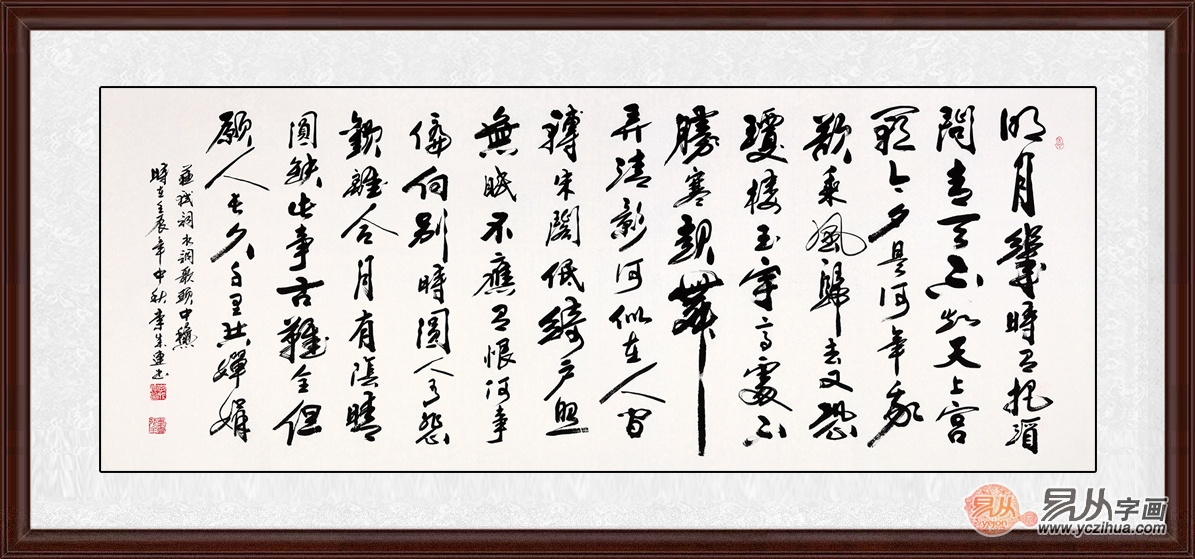 明月幾時有把酒
問青天不知天上宮
闕今夕是何年我
欲乘風歸去又恐
瓊樓玉宇高處不
勝寒起舞
弄清影何似在人間
轉朱閣低綺戶照
無眠不應有恨何事
偏向別時圓人有悲
歡離合月有陰晴
圓缺此事古難全但
願人長久千里共嬋娟
蘇軾詞水調歌頭中龝
時在壬辰年中秋李成連书
易从
易从字画
www.yczihua.com